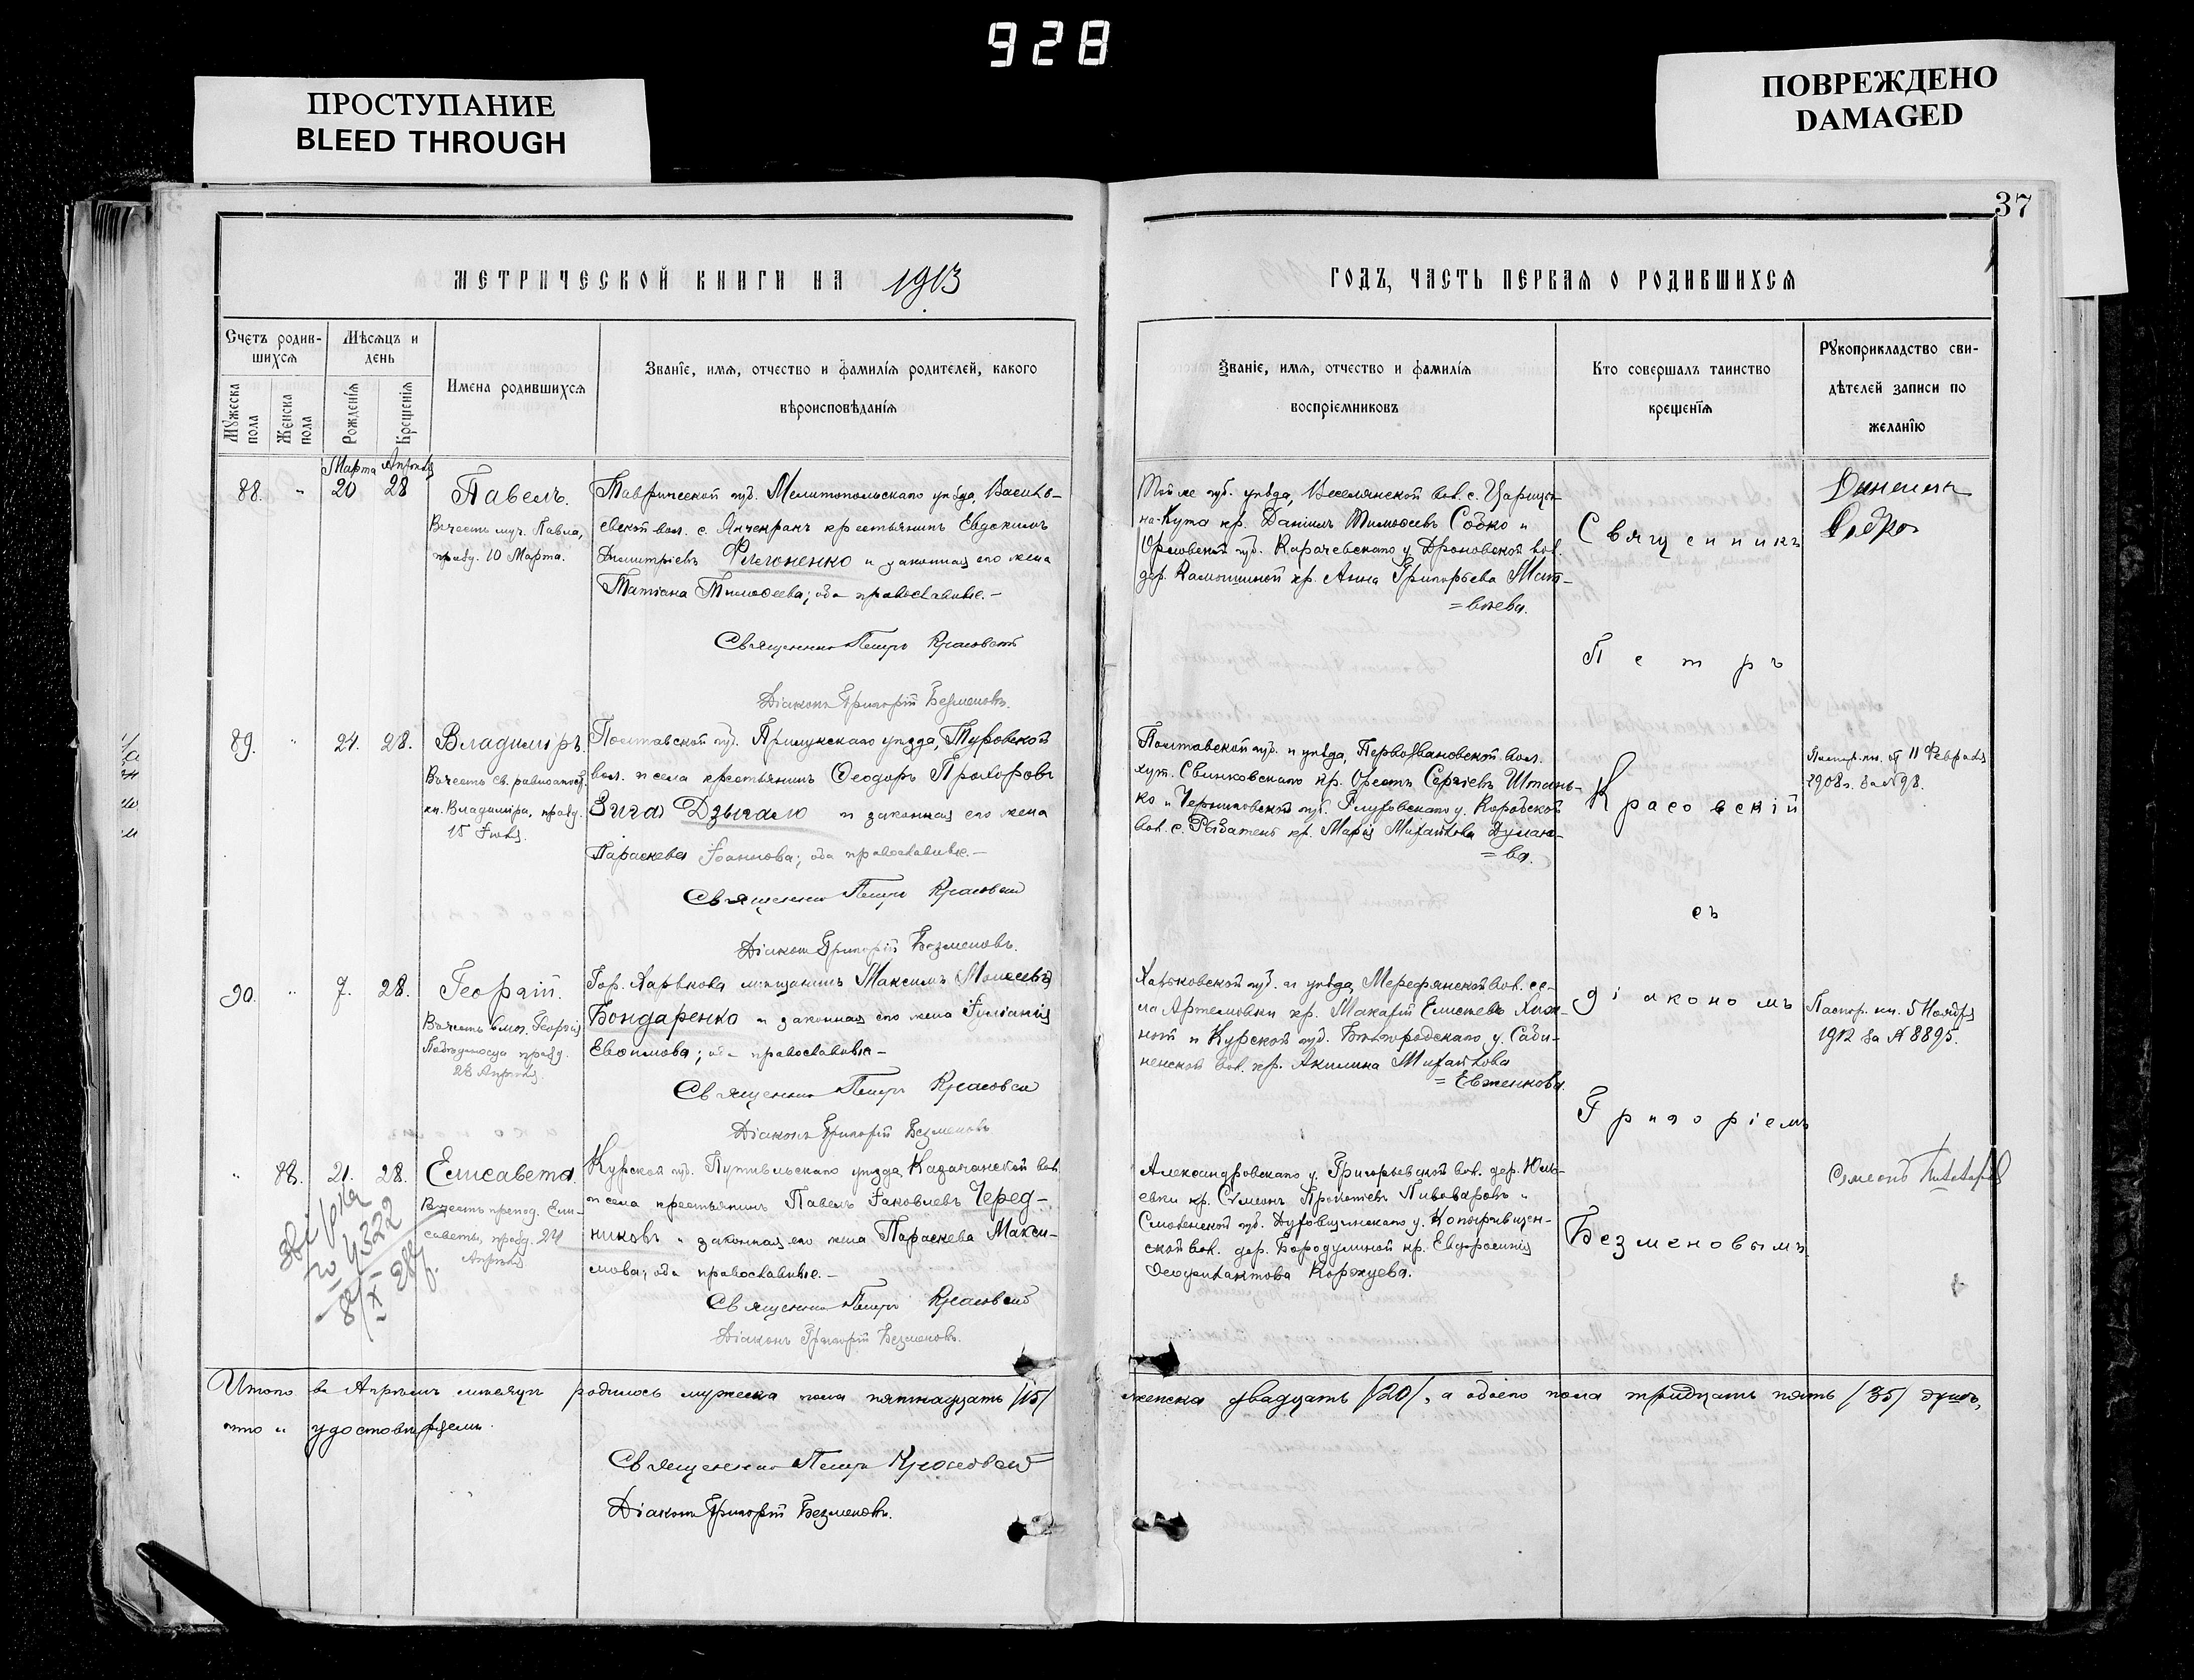 928
ПРОСТУПАНИЕ
BLEED THROUGH
ПОВРЕЖДЕНО
DAMAGED
37
МЕТРИЧЕСКОЙ КНИГИ НА 1913
ГОДЪ, ЧАСТЬ ПЕРВАЯ О РОДИВШИХСЯ
Счетъ родив-
шихся
Мѣсяцъ и
день
Мужеска
пола
Женска
пола
Рожденія
Крещенія
Имена родившихся
Званіе, имя, отчество и фамилія родителей, какого
вѣроисповѣданія
Званіе, имя, отчество и фамилія
воспріемниковъ
Кто совершалъ таинство
крещенія
Рукоприкладство сви-
дѣтелей записи по
желанію
Марта Апрѣля
88. " 20 28
Павелъ.
Въ честь муч. Павла,
празд. 10 Марта.
Таврической губ. Мелитопольскаго уѣзда, Василь-
евской вол. с. Янчекракъ крестьянинъ Евдокимъ
Димитріевъ Флегоненко и законная его жена
Татіана Тимоѳеева; оба православные.-
Священникъ Петръ Красовскій
Діаконъ Григорій Безменовъ.
Той же губ. уѣзда, Веселянской вол. с. Царицы-
на-Кута кр. Даніилъ Тимоѳеевъ Собко и
Орловской губ. Карачевскаго у. Дроновской вол.
дер. кр. Анна Григорьева Мат-
=вѣева.
89. " 24. 28.
Владиміръ.
Въ честь св. равноапост.
кн. Владиміра, празд.
15 Іюля.
Полтавской губ. Прилукскаго уѣзда, Туровской
вол. и села крестьянинъ Ѳеодоръ Прохоровъ
Зига Дзыгало и законная его жена
Параскева Іоаннова; оба православные.-
Священникъ Петръ Красовскій
Діаконъ Григорій Безменовъ.
Полтавской губ. и уѣзда, Первозвановской вол.
хут. Свинковскаго кр. Орестъ Сергіевъ Штань-
ко и Черниговской губ. Глуховскаго у.
вол. с. кр. Марія Михайлова Думан-
=ва.
Паспор. кн. от 11 Февраля
1908 г. за № 98.
90. " 7. 28.
Георгій.
Въ честь вмч. Георгія
Побѣдоносца празд.
23 Апрѣля.
Гор. Харькова мѣщанинъ Максимъ Моисеевъ
Бондаренко и законная его жена Іуліанія
Евѳимова; оба православные-
Священникъ Петръ Красовскій
Діаконъ Григорій Безменовъ
Харьковской губ. и уѣзда, Мерефянской вол. се-
ла Артемовки кр. Макарій
и Курской губ. Бѣлгородскаго у. Саби-
нинской вол. кр. Акилина Михайлова
= Евженкова.
Паспор. кн. 5 Ноября
1912 за № 8895.
" 88. 21. 28.
Елисавета.
Въ честь препод. Ели-
саветы, празд. 24
Апрѣля
Курской губ. Путивльскаго уѣзда, Казачанской вол.
и села крестьянинъ Павелъ Іаковлевъ Черед-
никовъ и законная его жена Параскева Макси-
мова; оба православные.-
Священникъ Петръ Красовскій
Діаконъ Григорій Безменовъ.
Александровскаго у. Григорьевской вол. дер. Юль-
евки кр. Сѵмеонъ Прокопіевъ Пивоваровъ и
Смоленской губ. Духовщинскаго у.
ской вол. дер. Бородулиной кр. Евфросинія
Ѳеофилактова Коржуева.
Священникъ
Петръ
Красовскій
съ
діакономъ
Григоріемъ
Безменовымъ.
Итого въ Апрѣлѣ мѣсяцѣ родилось мужеска пола пятнадцать /15/ женска двадцать /20/, а обоего пола тридцать пять /35/ душъ,
что и удостовѣряемъ.
Священникъ Петръ Красовскій
Діаконъ Григорій Безменовъ.